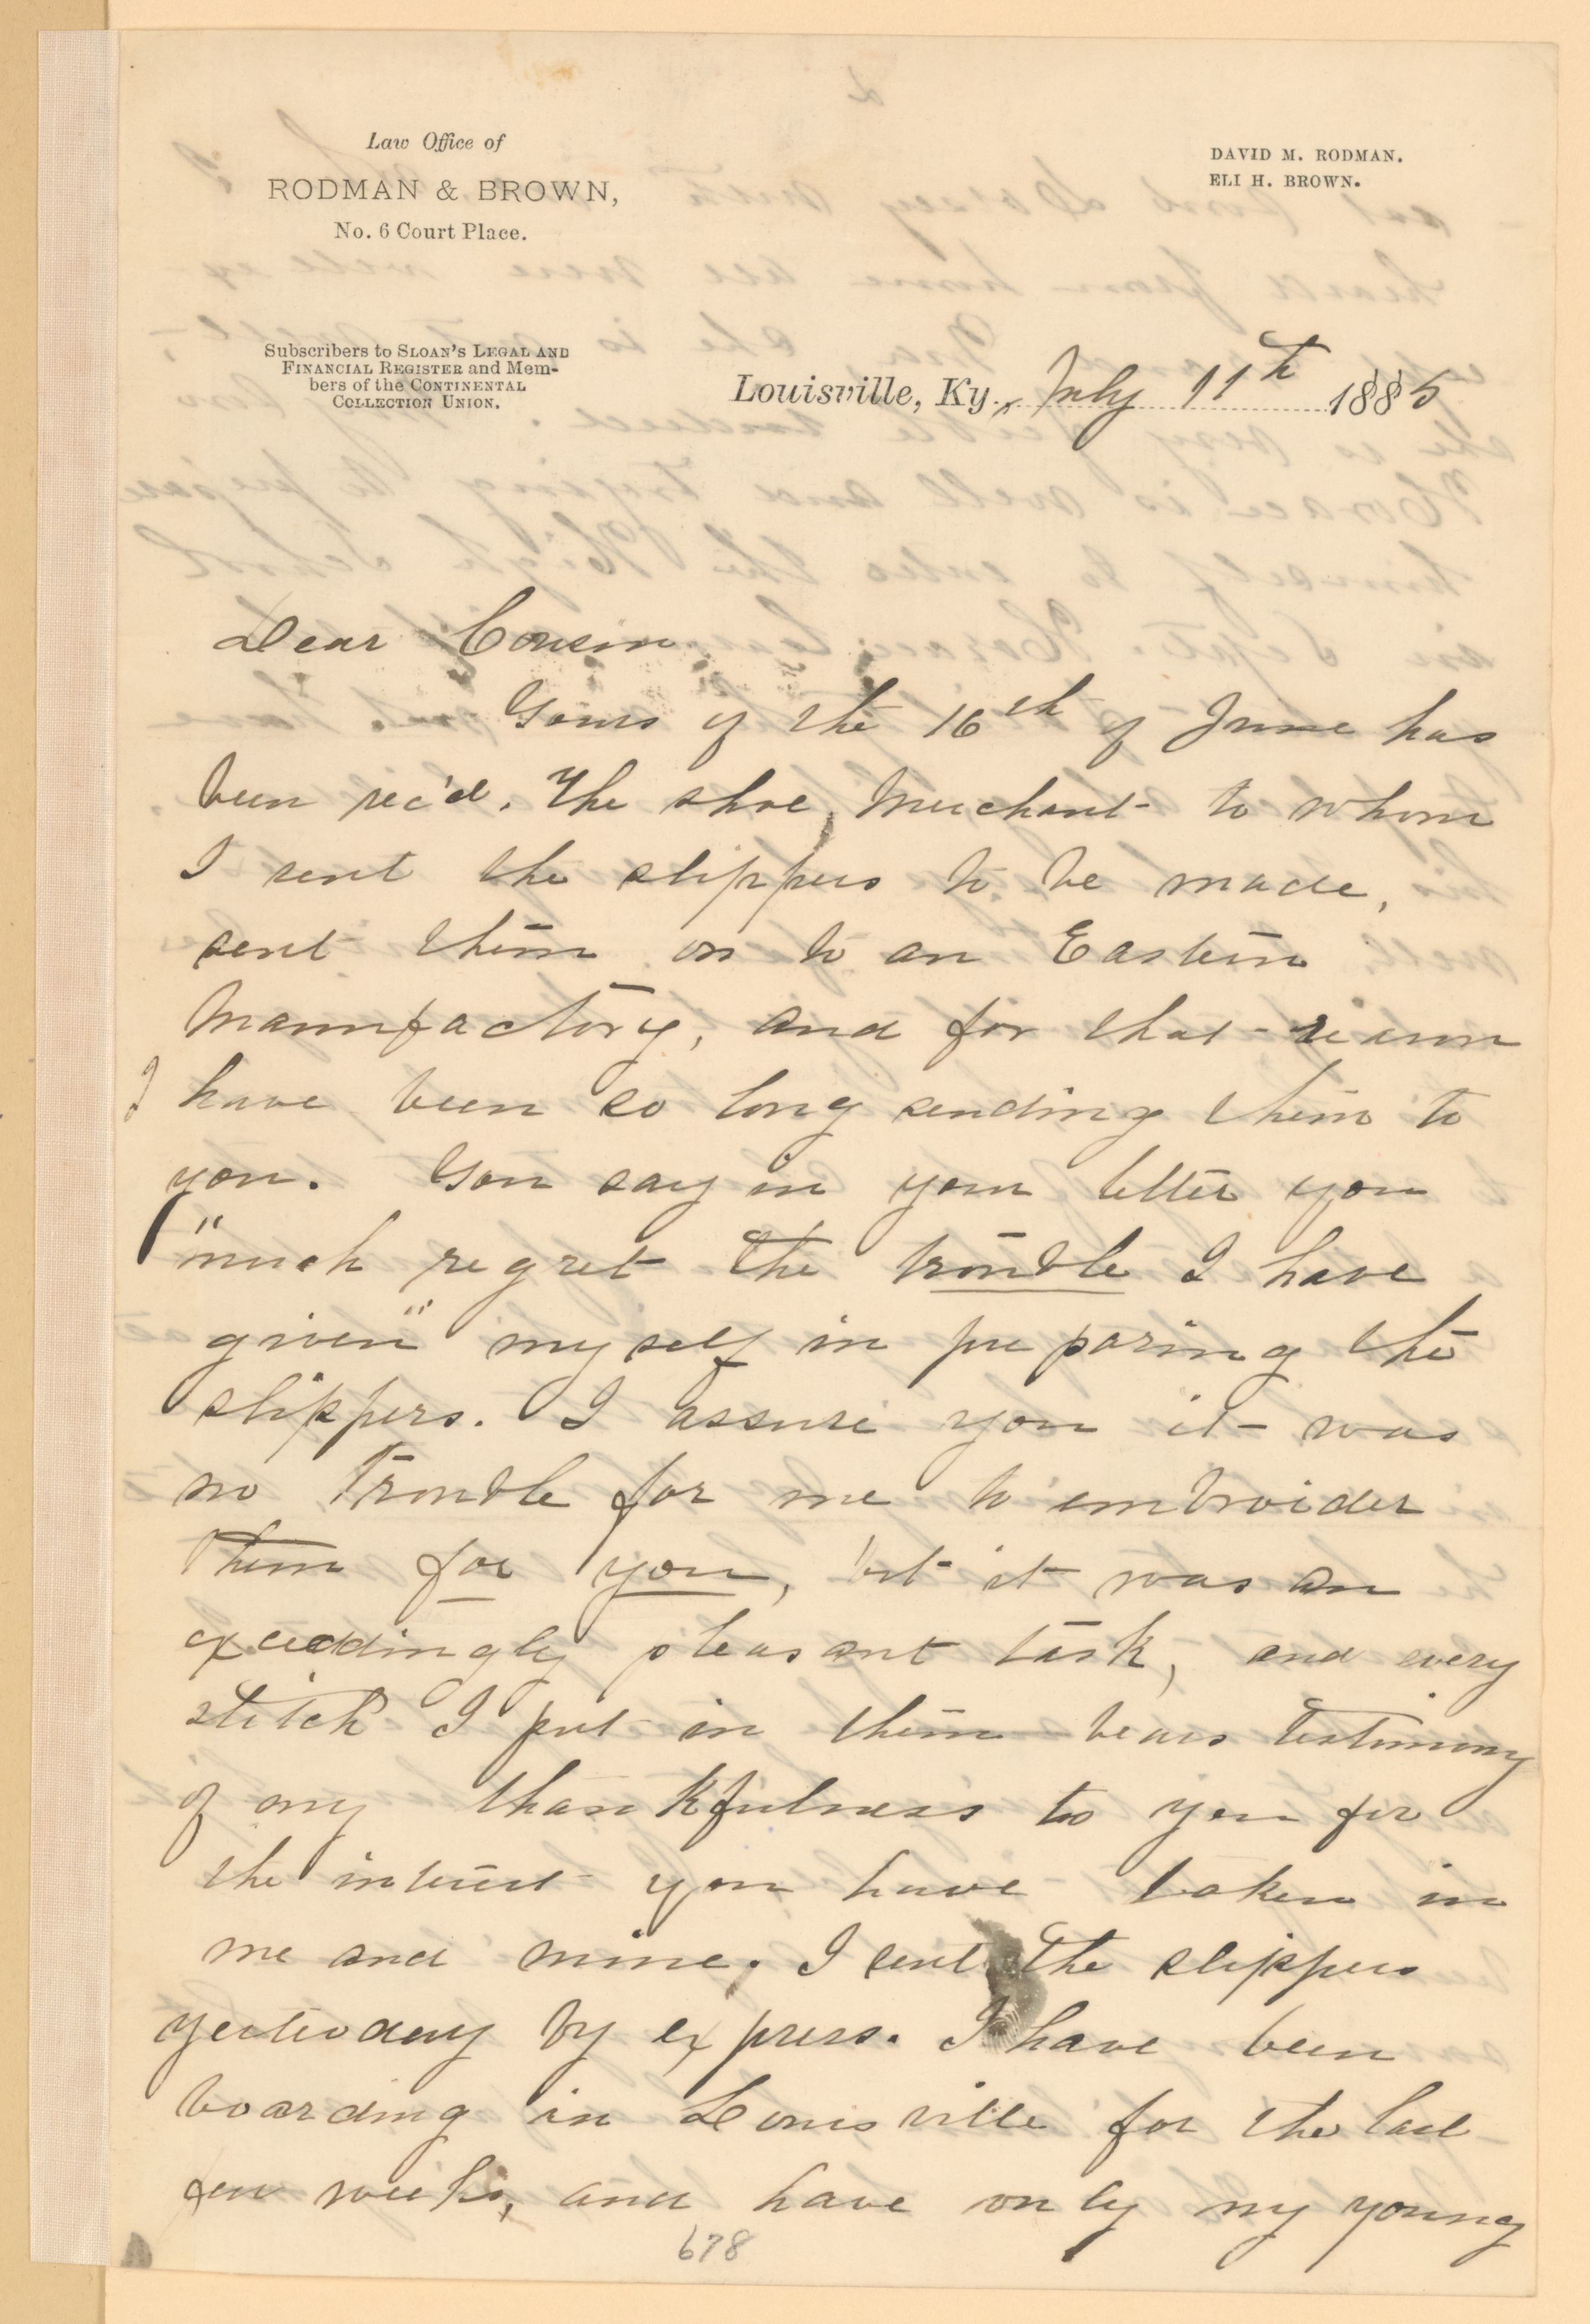 Law Office of
RODMAN & BROWN,
No. 6 Court Place.
DAVID M. RODMAN.
ELI H. BROWN.
Subscribers to SLOAN'S LEGAL AND
FINANCIAL REGISTER and Mem-
bers of the CONTINENTAL
COLLECTION UNION.
Louisville, Ky., July 11th 1885
Dear Cousin
Yours of the 16th of June has
been rec'd. The shoe merchant to whom
I sent the slippers to be made,
sent them on to an Eastern
Manufactory, and for that reason
I have been so long sending them to
you. You say in your letter you
"much regret the trouble I have
given" myself in preparing the
slippers. I assure you it was
no trouble for me to embroider
them for you, but it was an
exceedingly pleasant task, and every
stitch I put in them bears testimony
of my thankfulness to you for
the interest you have taken in
me and mine. I sent the slippers
yesterday by express. I have been
boarding in Louisville for the last
few weeks, and have only my young
678